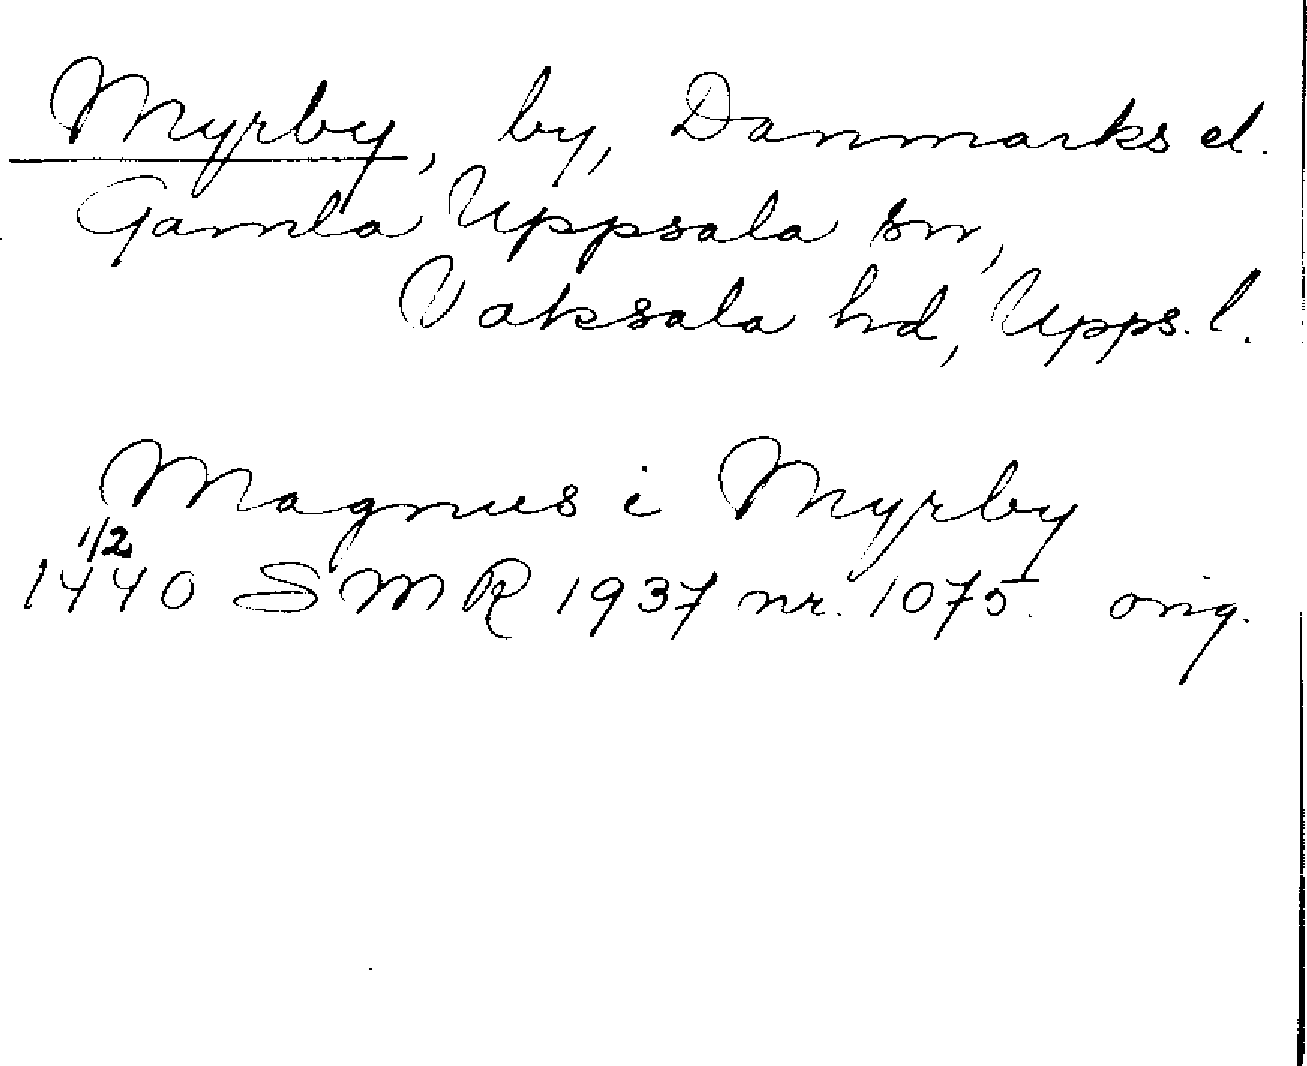 Myrby, by, Danmarks el.
Gamla Uppsala sn,
Vaksala hd, Upps. l.
Magnus i Myrby
1/2
1440 SMR 1937 nr. 1075. orig.